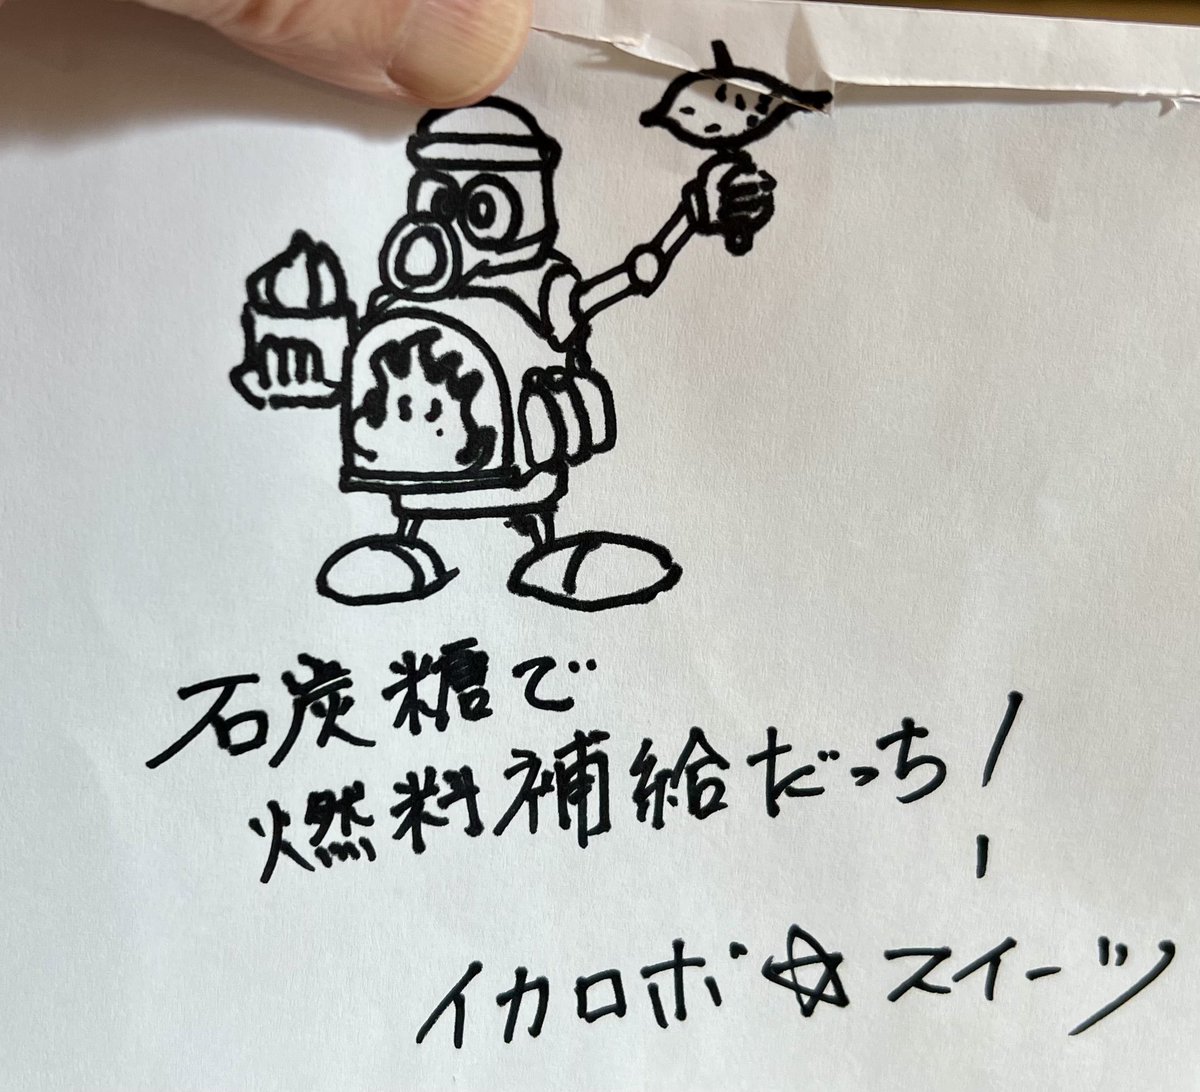 石炭糖で
燃料補給だっち!
イカロボ☆スイーツ